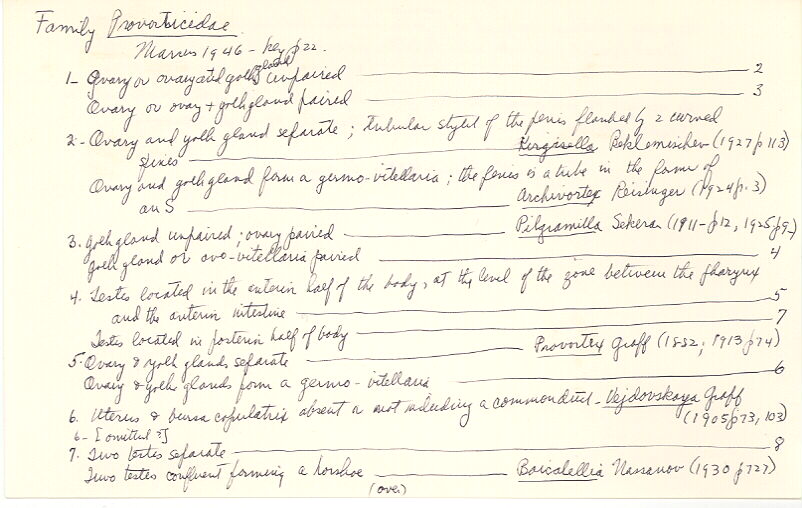 Family Provorticidae
Marcus 1946 - key p22.
1- Ovary or ovary and yolk gland unpaired ——— 2
Ovary or ovary + yolk gland paired ——— 3
2- Ovary and yolk gland separate; tubular stylet of the penis flanked by 2 curved
spines ——— Kirgisella Beklemischev (1927 p 113)
Ovary and yolk gland form a germo-vitellaria; the penis is a tube in the form of
an S ——— Archivortex Reisinger (1924 p. 3)
3. yolk gland unpaired; ovary paired ——— Pilgramilla Sekera (1911-p12, 1925 p9-)
yolk gland or ovo-vitellaria paired ——— 4
4. Testes located in the anterior half of the body, at the level of the zone between the pharynx
and the anterior intestine ——— 5
Testes located in posterior half of body ——— 7
5. Ovary & yolk glands separate ——— Provortex Graff (1882; 1913 p 74)
Ovary & yolk glands form a germo-vitellaria ——— 6
6. Uterus & bursa copulatrix absent or not including a common duct - Vejdovskaya Graff
(1905 p73, 103)
6- [omitted ?]
7. Two testes separate ——— 8
Two testes confluent forming a horshoe ——— Baicalellia Nassanov (1930 p 727)
(over)